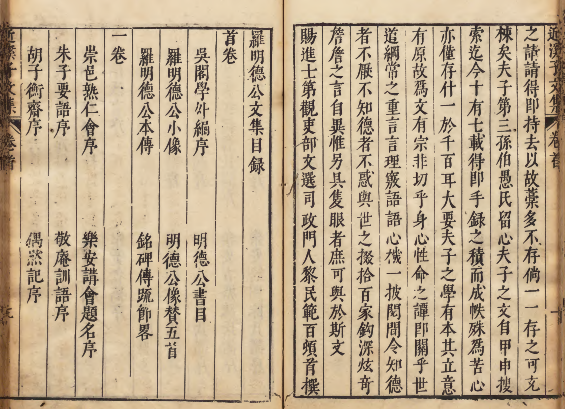 之請請得即持去以故藁多不存倘一一存之可充
棟矣夫子第三孫伯愚氏留心夫子之文自甲申搜
索迄今十有七載得即手録之積而成帙殊為苦心
亦僅存什一於千百耳大要夫子之學有本其立意
有原故為文有宗非切乎身心性命之譚即關乎世
道綱常之重言言理竅語語心機一披閱間令知德
者不厭不知德者不惑與世之掇拾百家鈎深炫奇
詹詹之言自異惟另具隻眼者庶可與於斯文
賜進士第觀吏部文選司政門人黎民範百頓首撰
羅明德公文集目録
首卷
吳閣學外編序
明德公書目
羅明德公小像
明德公像賛五首
羅明德公本傳
銘碑傳疏節畧
一卷
崇邑熟仁會序
樂安講會題名序
朱子要語序
敬庵訓語序
胡子衡齋序
偶然記序
近溪子文集
卷首